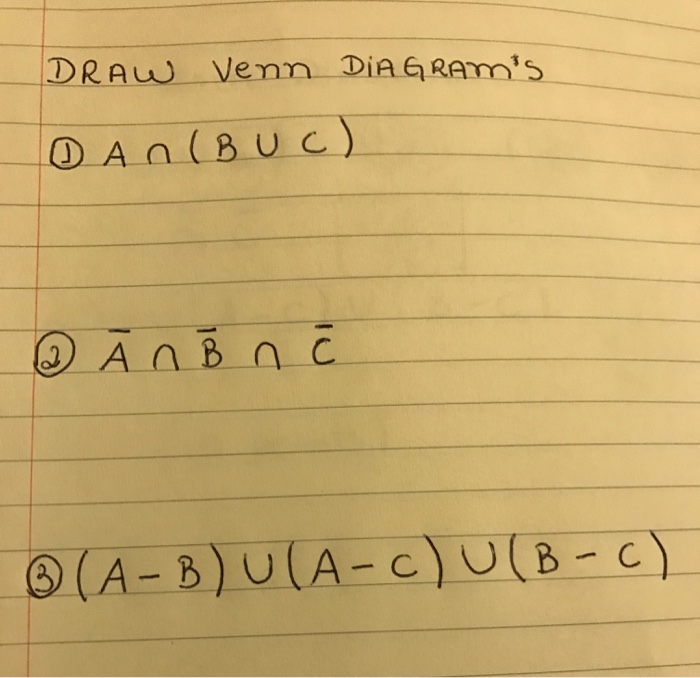 DRAW Venn DiAGRAm's
① A ∩ ( B ∪ C )
② A̅ ∩ B̅ ∩ C̅
③ (A - B) ∪ (A - C) ∪ (B - C)